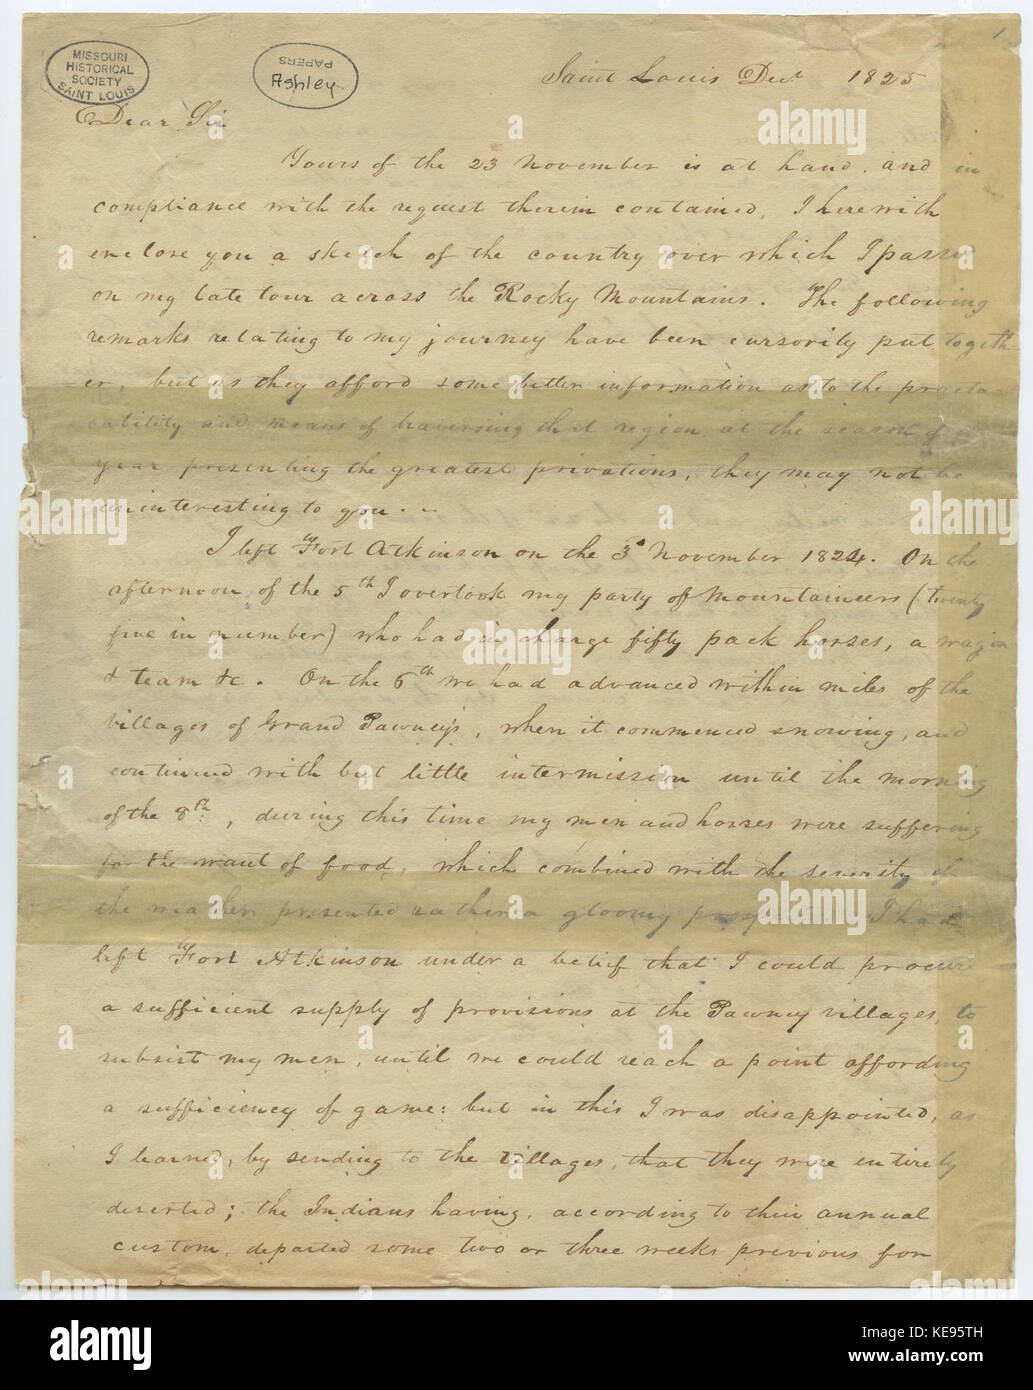 1
MISSOURI
HISTORICAL
SOCIETY
SAINT LOUIS
PAPERS
Ashley
Saint Louis Decr 1825
Dear Sir
Yours of the 23 November is at hand, and in
compliance with the request therein contained, I herewith
enclose you a sketch of the country over which I passed
on my late tour across the Rocky Mountains. The following
remarks relating to my journey have been cursorily put togeth
er, but as they afford some better information as to the practa
cability and means of traversing that region at the season of
year presenting the greatest privations, they may not be
uninteresting to you. –
I left Fort Atkinson on the 3d November 1824. On the
afternoon of the 5th I overtook my party of Mountaineers (twenty
five in number) who had in charge fifty pack horses, a wagon
& team &c. On the 6th we had advanced within miles of the
villages of Grand Pawney's, when it commenced snowing, and
continued with but little intermission until the morning
of the 8th, during this time my men and horses were suffering
for the want of food, which combined with the severity of
the weather presented rather a gloomy prospect. I had
left Fort Atkinson under a belief that I could procure
a sufficient supply of provisions at the Pawney villages, to
subsist my men, until we could reach a point affording
a sufficiency of game: but in this I was disappointed, as
I learned, by sending to the villages, that they were entirely
deserted; the Indians having, according to their annual
custom, departed some two or three weeks previous for
alamy
a
alamy
Image ID: KE95TH
www.alamy.com